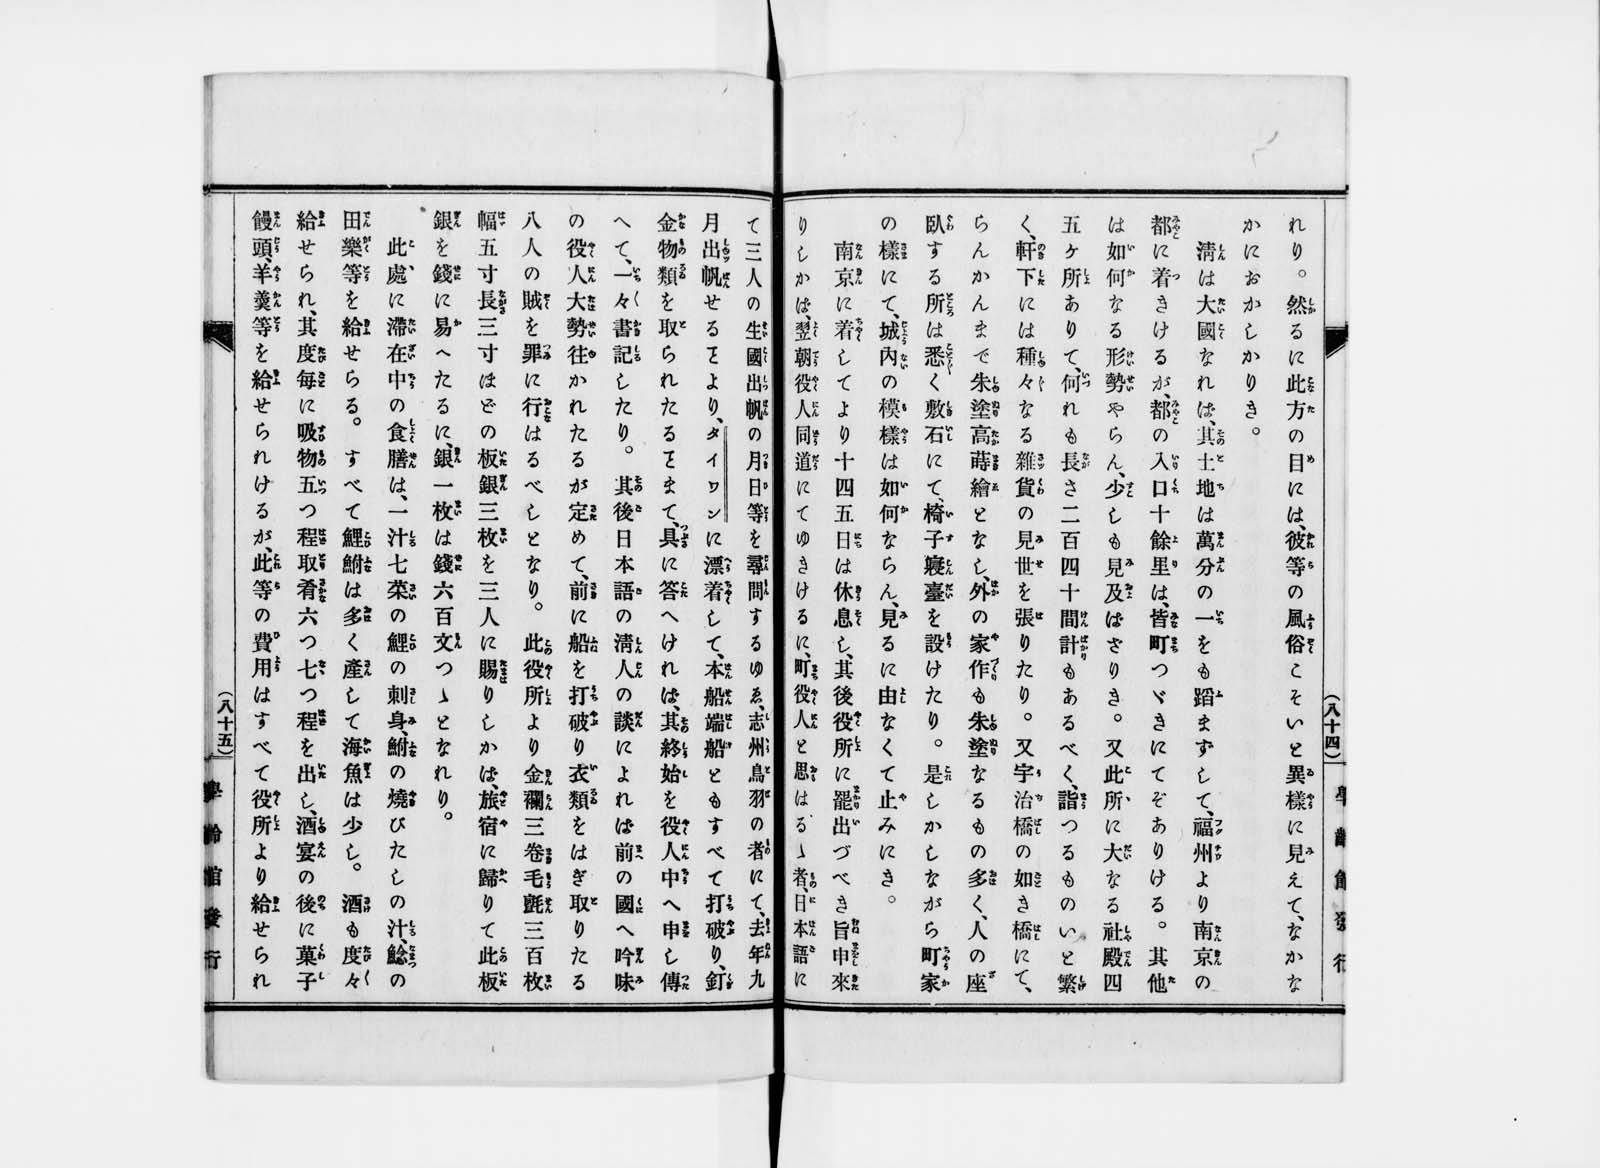 れり。然るに此方の目には、彼等の風俗こそいと異樣に見えて、なかな
かにおかしかりき。
淸は大國なれば、其土地は萬分の一をも蹈まずして、福州より南京の
都に着きけるが、都の入口十餘里は、皆町つゞきにてぞありける。其他
は如何なる形勢やらん、少しも見及ばざりき。又此所に大なる社殿四
五ヶ所ありて、何れも長さ二百四十間計もあるべく、詣つるものいと繁
く、軒下には種々なる雜貨の見世を張りたり。又宇治橋の如き橋にて、
らんかんまで朱塗高蒔繪となし、外の家作も朱塗なるもの多く、人の座
臥する所は悉く敷石にて、椅子寢臺を設けたり。是しかしながら町家
の樣にて、城內の模樣は如何ならん、見るに由なくて止みにき。
南京に着してより十四五日は休息し、其後役所に罷出づべき旨申來
りしかば、翌朝役人同道にてゆきけるに、町役人と思はるゝ者、日本語に
(八十四)
學齡館發行
て三人の生國出帆の月日等を尋問するゆゑ、志州鳥羽の者にて、去年九
月出帆せるヿより、タイワンに漂着して、本船端船ともすべて打破り、釘
金物類を取られたるヿまて、具に答へければ、其終始を役人中へ申し傳
へて、一々書記したり。其後日本語の淸人の談によれば前の國へ吟味
の役人大勢往かれたるが定めて、前に船を打破り衣類をはぎ取りたる
八人の賊を罪に行はるべしとなり。此役所より金襴三卷毛氈三百枚
幅五寸長三寸ほどの板銀三枚を三人に賜りしかば、旅宿に歸りて此板
銀を錢に易へたるに、銀一枚は錢六百文つゝとなれり。
此處に滯在中の食膳は、一汁七菜の鯉の刺身、鮒の燒びたしの汁、鯰の
田樂等を給せらる。すべて鯉鮒は多く產して海魚は少し。酒も度々
給せられ、其度每に吸物五つ程取肴六つ七つ程を出し、酒宴の後に菓子
饅頭、羊羹等を給せられけるが、此等の費用はすべて役所より給せられ
(八十五)
學齡館發行